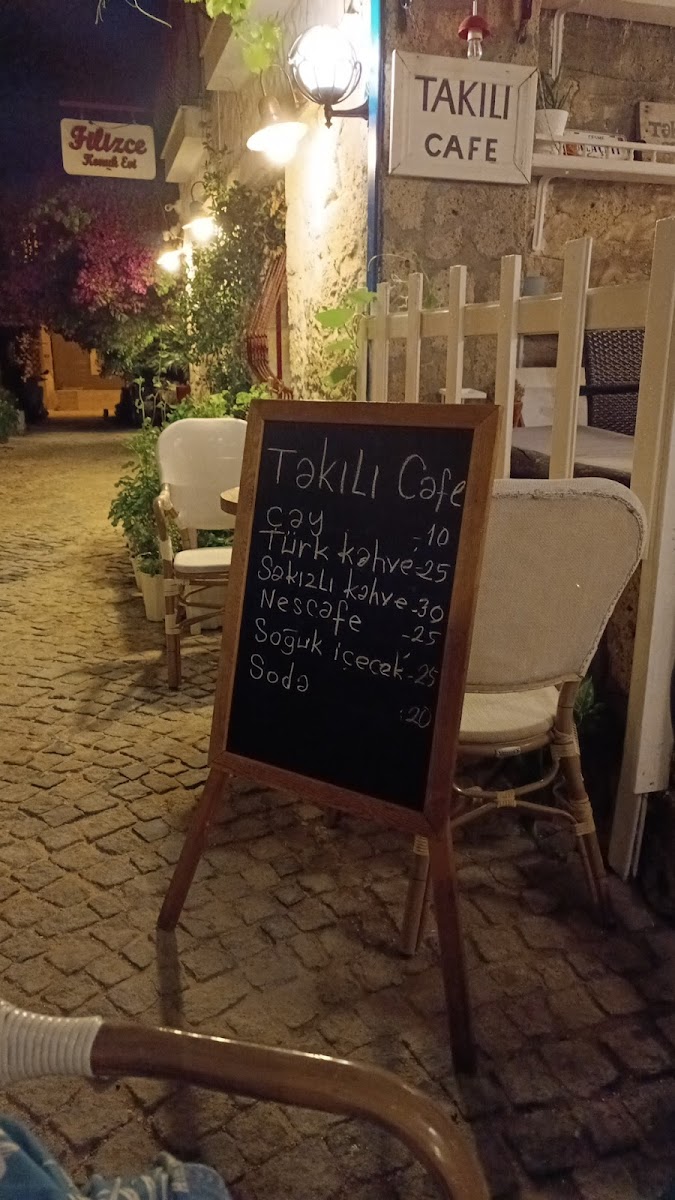 Filizce
Konuk Evi
TAKILI
CAFE
Takılı Cafe
çay -10
Türk kahve -25
Sakızlı kahve -30
Nescafe -25
Soğuk içecek -25
Soda -20